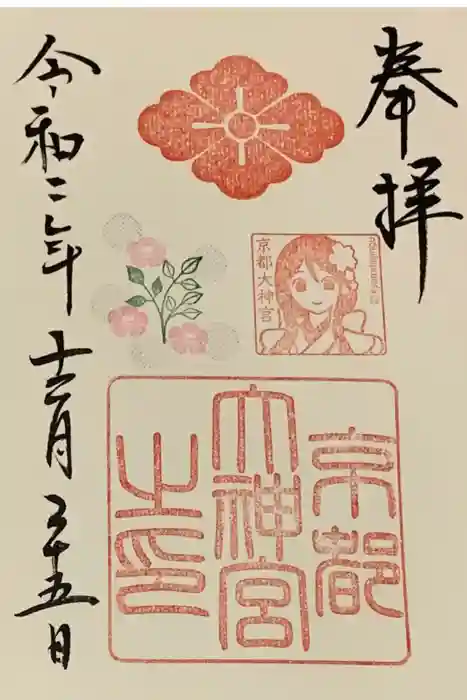 奉拝
京都大神宮
京都
大神宮
之印
令和二年十二月二十五日